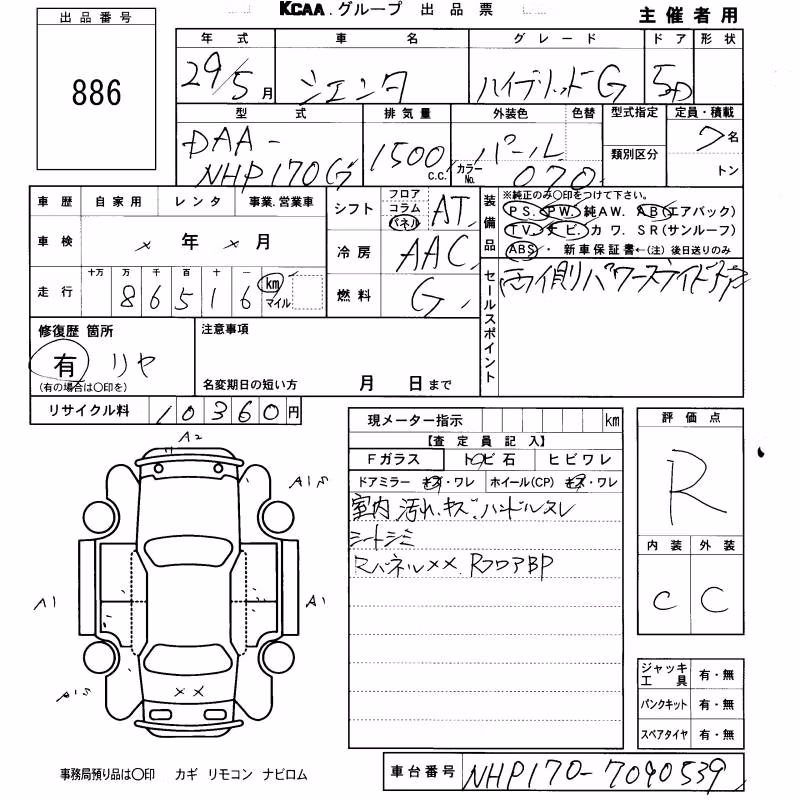 KCAA.グループ 出品票
主催者用
出品番号
886
年式 車名 グレード ドア 形状
29/5月 シエンタ ハイブリッドG 5D
型式 排気量 外装色 色替 型式指定 定員・積載
DAA-
NHP170G 1500 c.c. パール カラーNo. 070 類別区分 7名
トン
車歴 自家用 レンタ 事業.営業車
車検 × 年 × 月
走行 十万 万 千 百 十 一
86516 km マイル
シフト フロア コラム パネル AT
冷房 AAC
燃料 G
装備品 ※純正のみ○印をつけて下さい。
PS. PW. 純AW. AB(エアバック)
TV. ナビ. カワ. SR(サンルーフ)
ABS・ 新車保証書←(注)後日送りのみ
セールスポイント 両側パワースライドドア
修復歴 箇所
有 リヤ
(有の場合は○印を)
注意事項
名変期日の短い方 月 日まで
リサイクル料 10360円
現メーター指示 km
【査定員記入】
Fガラス トビ石 ヒビワレ
ドアミラー キズ・ワレ ホイール(CP) キズ・ワレ
室内 汚れ、キズ、ハンドルスレ
シートシミ
RパネルXX、RフロアBP
評価点
R
内装 外装
C C
ジャッキ工具 有・無
パンクキット 有・無
スペアタイヤ 有・無
A2
A1S
A1
A1
XX
事務局預り品は○印 カギ リモコン ナビロム
車台番号 NHP170-7090539